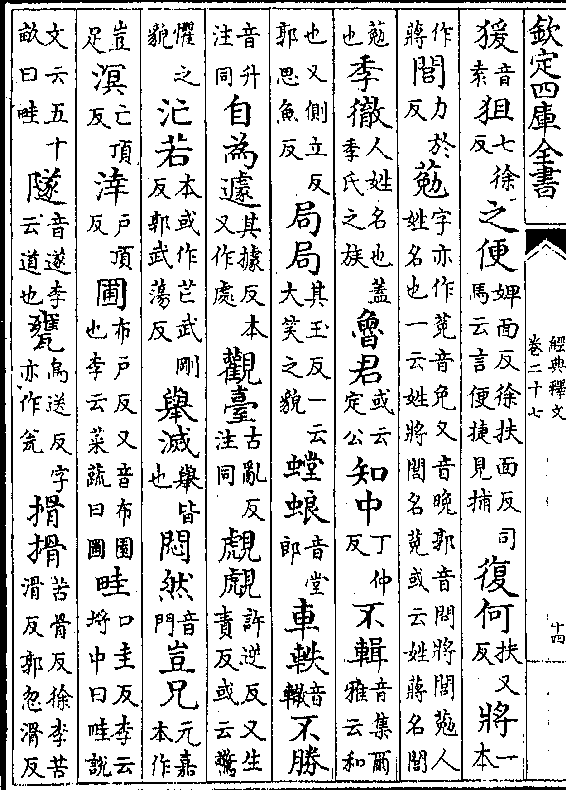 欽定四庫全書
經典釋文
卷二十七
十四
猨音袁狙七徐反之便婢面反徐扶面反司馬云言便捷見捕復何扶又反將一本
作蔣閭力於反葂字亦作莬音免又音晚郭音問將閭葂人姓名也一云姓將閭名莬或云姓蔣名閭
葂也季徹人姓名也蓋季氏之族魯君或云定公知中丁仲反不輯音集爾雅云和
也又側立反郭思魚反局局其玉反一云大笑之貌螳蜋音堂郎車軼音轍不勝
音升注同自為遽其據反本又作處觀臺古亂反注同覤覤許逆反又生責反或云驚
懼之貌汒若本或作芒武剛反郭武蕩反舉滅舉皆也悶然音門豈兄元嘉本作
豈足溟亡頂反涬戶頂反圃布戶反又音布園也李云菜蔬曰圃畦口圭反李云埒中曰畦說
文云五十畝曰畦隧音遂李云道也甕烏送反字亦作瓮搰搰苦骨反徐李苦滑反郭忽滑反